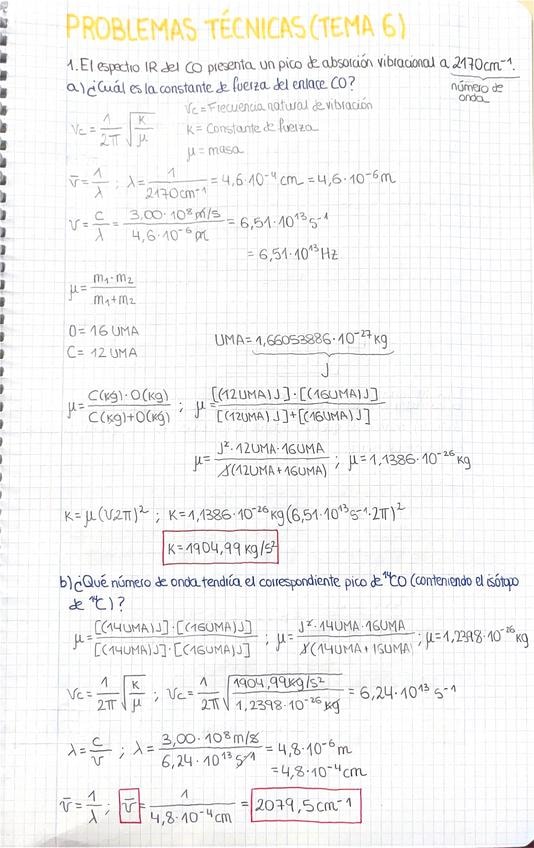 PROBLEMAS TÉCNICAS (TEMA 6)
1. El espectro IR del CO presenta un pico de absorción vibracional a 2170cm⁻¹.
número de onda
a) ¿Cuál es la constante de fuerza del enlace CO?
Vc = 1/2π √(K/μ)
Vc = Frecuencia natural de vibración
K = Constante de fuerza
μ = masa
ν̄ = 1/λ ; λ = 1/2170cm⁻¹ = 4,6·10⁻⁴ cm = 4,6·10⁻⁶ m
V = C/λ = 3,00·10⁸ m/s / 4,6·10⁻⁶ m = 6,51·10¹³ s⁻¹
= 6,51·10¹³ Hz
μ = m₁·m₂ / m₁+m₂
O = 16 UMA
C = 12 UMA
UMA = 1,66053886·10⁻²⁷ kg
J
μ = C(kg)·O(kg) / C(kg)+O(kg) ; μ = [(12UMA)J]·[(16UMA)J] / [(12UMA)J]+[(16UMA)J]
μ = J²·12UMA·16UMA / J(12UMA+16UMA) ; μ = 1,1386·10⁻²⁶ kg
K = μ(V2π)² ; K = 1,1386·10⁻²⁶ kg (6,51·10¹³ s⁻¹·2π)²
K = 1904,99 kg/s²
b) ¿Qué número de onda tendría el correspondiente pico de ¹⁴CO (conteniendo el isótopo
de ¹⁴C)?
μ = [(14UMA)J]·[(16UMA)J] / [(14UMA)J]·[(16UMA)J] ; μ = J²·14UMA·16UMA / J(14UMA+16UMA) ; μ = 1,2398·10⁻²⁶ kg
Vc = 1/2π √(K/μ) ; Vc = 1/2π √(1904,99kg/s² / 1,2398·10⁻²⁶ kg) = 6,24·10¹³ s⁻¹
λ = C/V ; λ = 3,00·10⁸ m/s / 6,24·10¹³ s⁻¹ = 4,8·10⁻⁶ m
= 4,8·10⁻⁴ cm
ν̄ = 1/λ ; ν̄ = 1 / 4,8·10⁻⁴ cm = 2079,5 cm⁻¹